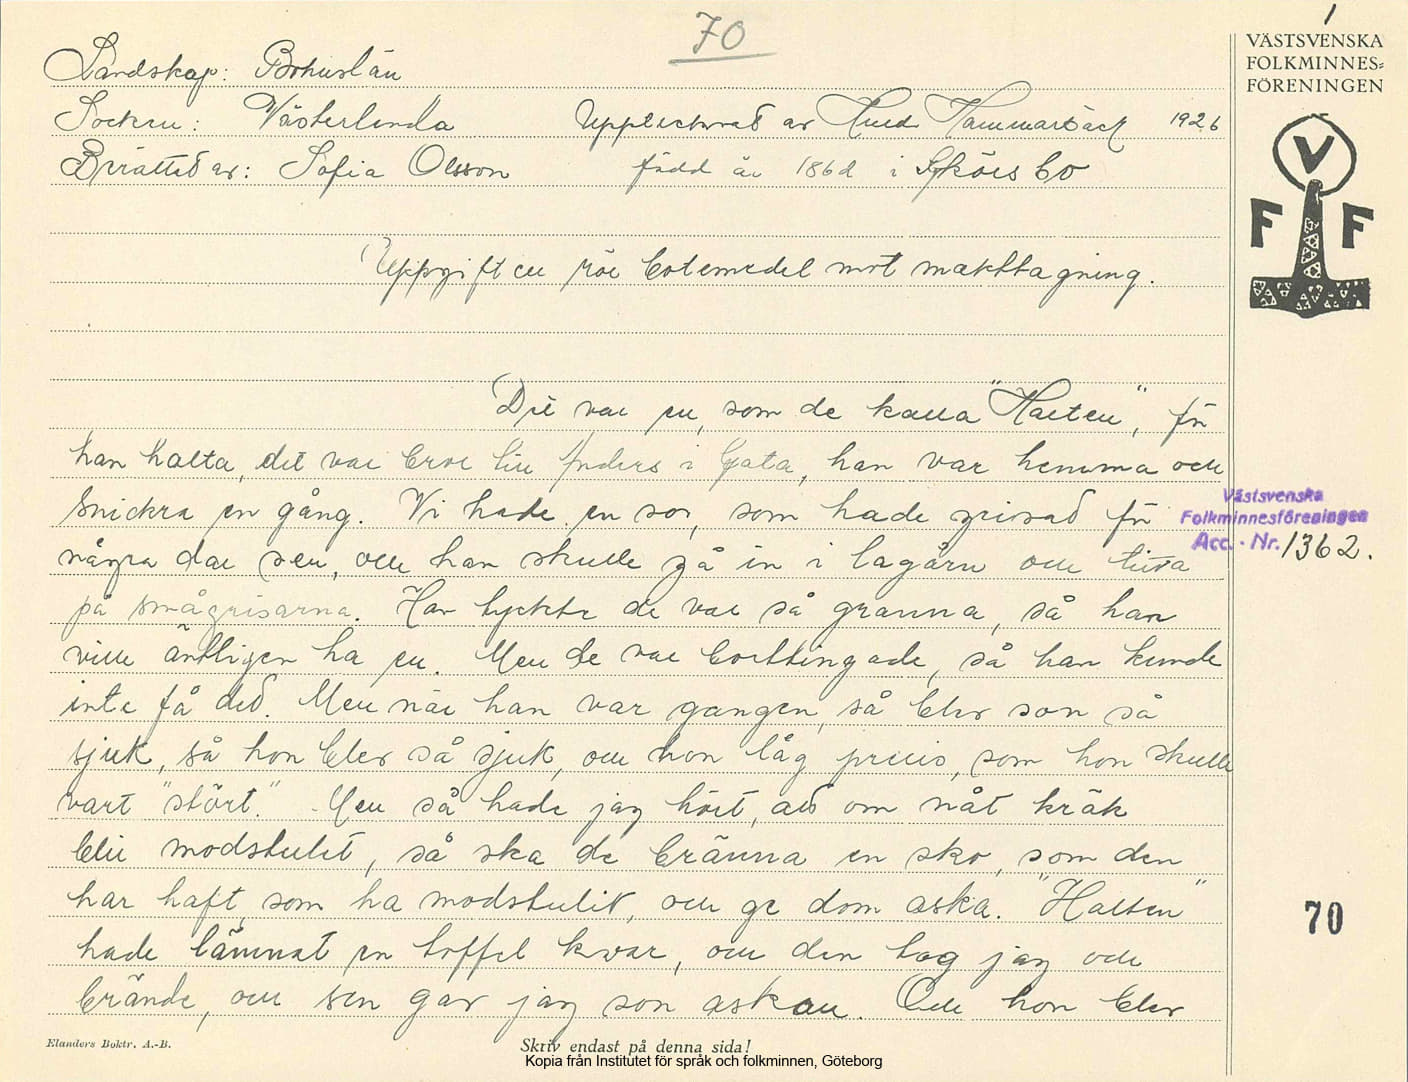 70
1
VÄSTSVENSKA
FOLKMINNES=
FÖRENINGEN
V
F F
Landskap: Bohuslän
Socken: Västerlanda Upptecknad av Hammarbäck 1926
Berättad av: Sofia Olsson född år 1862 i Skörsbo
Uppgiften rör botemedel mot makttagning.
Det var en, som de kalla "Halten", för
han halta, det var bror till Anders i Gata, han var hemma och
snickra en gång. Vi hade en so, som hade grisad för
några dar sen, och han skulle gå in i lagårn och titta
på smågrisarna. Han tyckte de var så granna, så han
ville äntligen ha en. Men de var borttingade, så han kunde
inte få ded. Men när han var gangen, så blev son så
sjuk, så hon blev så sjuk, och hon låg precis, som hon skulle
vart "stört." Men så hade jag hört, ad om nåt kräk
blir modstulet, så ska de bränna en sko, som den
har haft, som ha modstulit, och ge dom aska. "Halten"
hade lämnat en toffel kvar, och den tog jag och
brände, och sen gav jag son askan. Och hon blev
Västsvenska
Folkminnesföreningen
Acc. - Nr. 1362.
70
Elanders Boktr. A.-B.
Skriv endast på denna sida!
Kopia från Institutet för språk och folkminnen, Göteborg